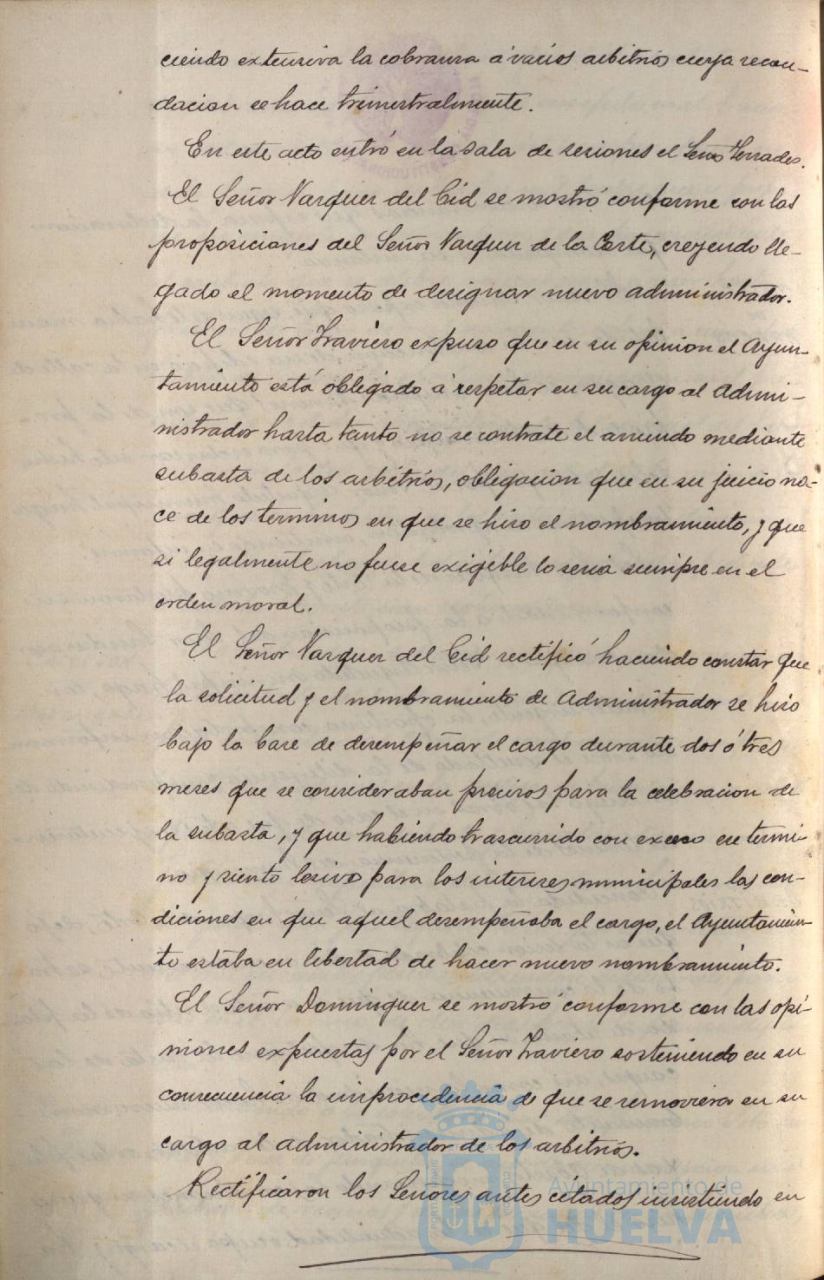 ciendo extensiva la cobranza á varios arbitrios cuya recau-
dacion se hace trimestralmente.
En este acto entró en la Sala de sesiones el Señor Terrades.
El Señor Vazquez del Cid se mostró conforme con las
proposiciones del Señor Vazquez de la Corte, creyendo lle-
gado el momento de designar nuevo administrador.
El Señor Traviero expuso que en su opinion el Ayun-
tamiento está obligado á respetar en su cargo al Admi-
nistrador hasta tanto no se contrate el arriendo mediante
subasta de los arbitrios, obligacion que en su juicio na-
ce de los terminos en que se hizo el nombramiento, y que
si legalmente no fuese exigible lo seria siempre en el
orden moral.
El Señor Vazquez del Cid rectificó haciendo constar que
la solicitud y el nombramiento de Administrador se hizo
bajo la base de desempeñar el cargo durante dos ó tres
meses que se consideraban precisos para la celebracion de
la subasta, y que habiendo trascurrido con exceso ese termi-
no y siento lesivo para los intereses municipales las con-
diciones en que aquel desempeñaba el cargo, el Ayuntamien-
to estaba en libertad de hacer nuevo nombramiento.
El Señor Dominguez se mostró conforme con las opi-
niones expuestas por el Señor Traviero sosteniendo en su
consecuencia la improcedencia de que se removiera en su
cargo al administrador de los arbitrios.
Rectificaron los Señores antes citados insistiendo en
Ayuntamiento de
HUELVA